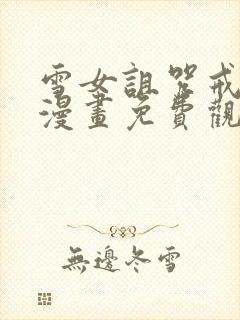 雪女詛咒戒
漫畫免費觀
無邊冬雪